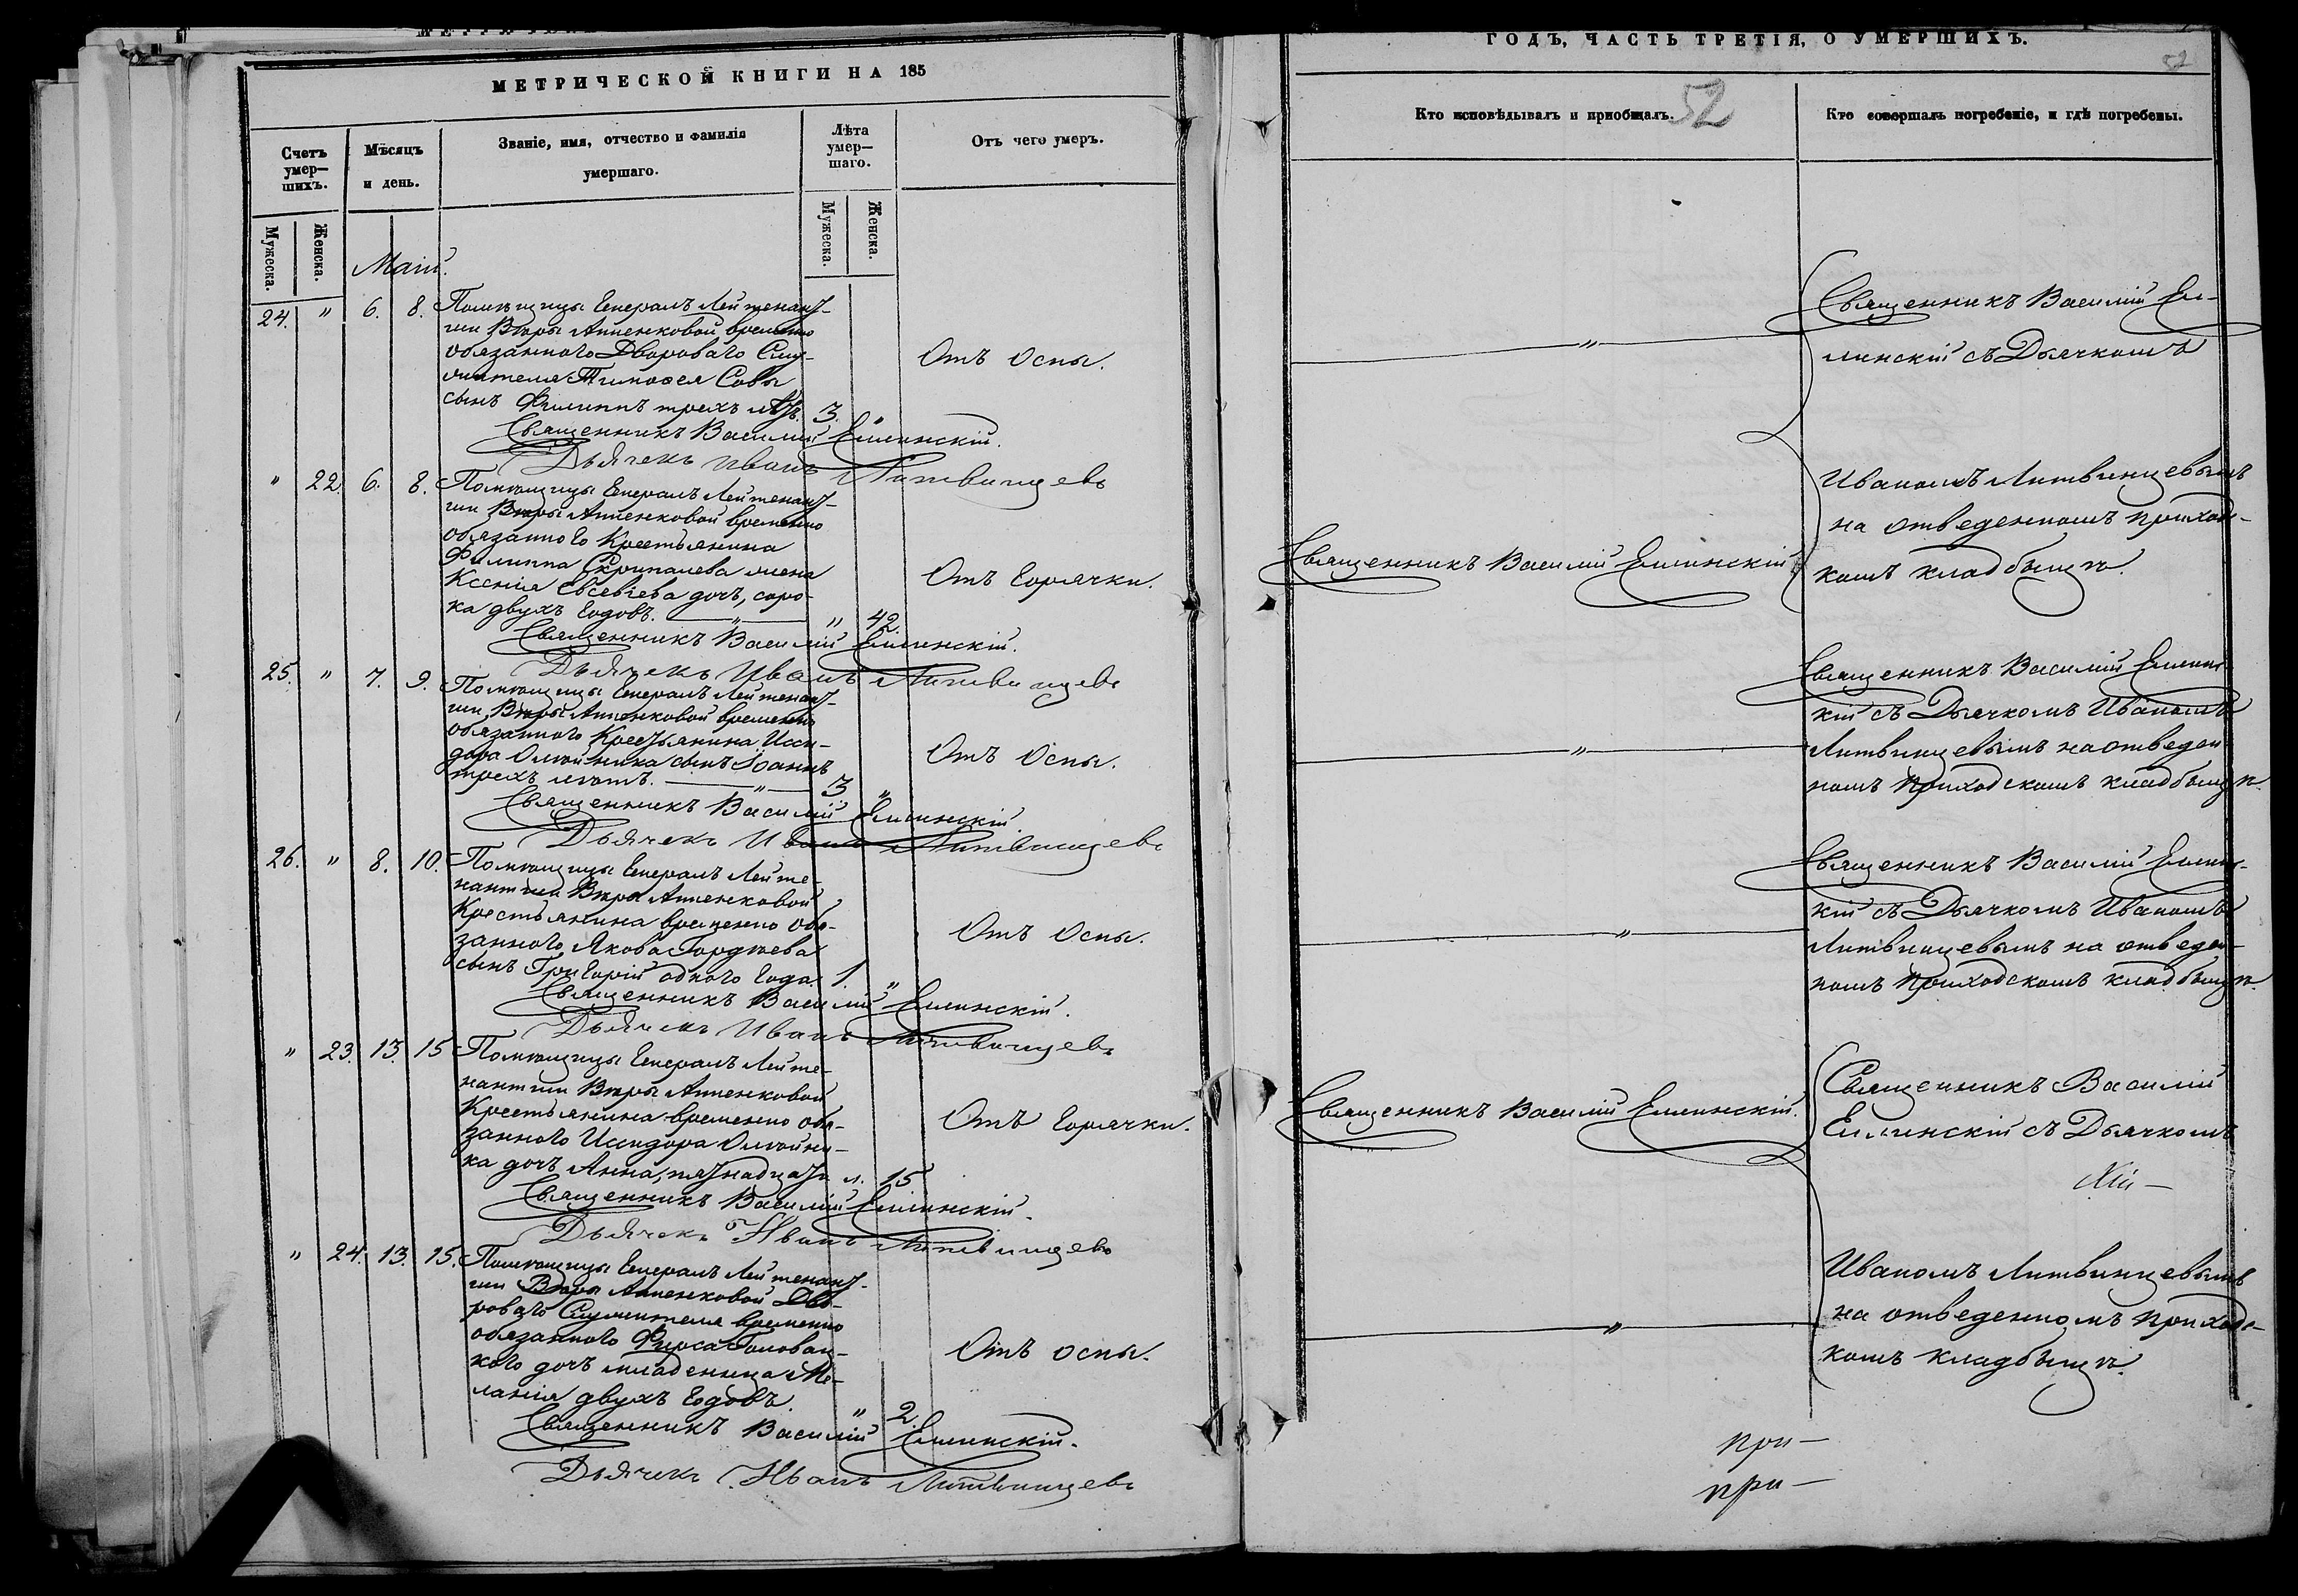 МЕТРИЧЕСКОЙ КНИГИ НА 185
Счетъ умер—шихъ.
Мѣсяцъ и день.
Званіе, имя, отчество и фамилія умершаго.
Лѣта умер—шаго.
Отъ чего умеръ.
Мужеска.
Женска.
Мужеска.
Женска.
Маій.
24. " 6. 8. Помѣщицы Генералъ Лейтенант-
ши Вѣры Анненковой временно
обязаннаго Двороваго Слу-
жителя Тимоѳея Совы
сынъ Филиппъ трехъ лѣтъ. 3. "
Отъ Оспы.
Священникъ Василій Еллинскій.
Дьячекъ Иванъ Литвинцевъ
" 22. 6. 8. Помѣщицы Генералъ Лейтенант-
ши Вѣры Анненковой временно
обязаннаго Крестьянина
Филиппа Скрипалева жена
Ксенія Евсевіева дочь, соро-
ка двухъ годовъ. " " 42.
Отъ Горячки.
Священникъ Василій Еллинскій.
Дьячекъ Иванъ Литвинцевъ
25. " 7. 9. Помѣщицы Генералъ Лейтенант-
ши Вѣры Анненковой временно
обязаннаго Крестьянина Иси-
дора Олейника сынъ Іоаннъ
трехъ лѣтъ. " 3 "
Отъ Оспы.
Священникъ Василій Еллинскій.
Дьячекъ Иванъ Литвинцевъ
26. " 8. 10. Помѣщицы Генералъ Лейте-
нантши Вѣры Анненковой
Крестьянина временно обя-
заннаго Якова Гордѣева
сынъ Григорій одного года. 1. "
Отъ Оспы.
Священникъ Василій Еллинскій.
Дьячекъ Иванъ Литвинцевъ
" 23. 13. 15 Помѣщицы Генералъ Лейте-
нантши Вѣры Анненковой
Крестьянина временно обя-
заннаго Исидора Олейни-
ка дочь Анна, пятнадцать л. 15
Отъ Горячки.
Священникъ Василій Еллинскій.
Дьячекъ Иванъ Литвинцевъ
" 24. 13. 15. Помѣщицы Генералъ Лейтенант-
ши Вѣры Анненковой Дво-
роваго Служителя временно
обязаннаго Фирса Головац-
кого дочь младеница Ме-
ланія двухъ годовъ. " 2.
Отъ оспы.
Священникъ Василій Еллинскій.
Дьячекъ Иванъ Литвинцевъ
ГОДЪ, ЧАСТЬ ТРЕТІЯ, О УМЕРШИХЪ.
52
52
Кто исповѣдывалъ и пріобщалъ.
Кто совершалъ погребеніе, и гдѣ погребены.
"
Священникъ Василій Ел-
линскій съ Дьячкомъ
Священникъ Василій Еллинскій.
Иваномъ Литвинцевымъ
на отведенномъ приходс-
комъ кладбищѣ.
"
Священникъ Василій Еллинс-
кій съ Дьячкомъ Иваномъ
Литвинцевымъ на отведен-
номъ приходскомъ кладбищѣ.
"
Священникъ Василій Еллинс-
кій съ Дьячкомъ Иваномъ
Литвинцевымъ на отведен-
номъ приходскомъ кладбищѣ.
Священникъ Василій Еллинскій.
Священникъ Василій
Еллинскій съ Дьячкомъ
"
Иваномъ Литвинцевымъ
на отведенномъ приходс-
комъ кладбищѣ.
при—
при—